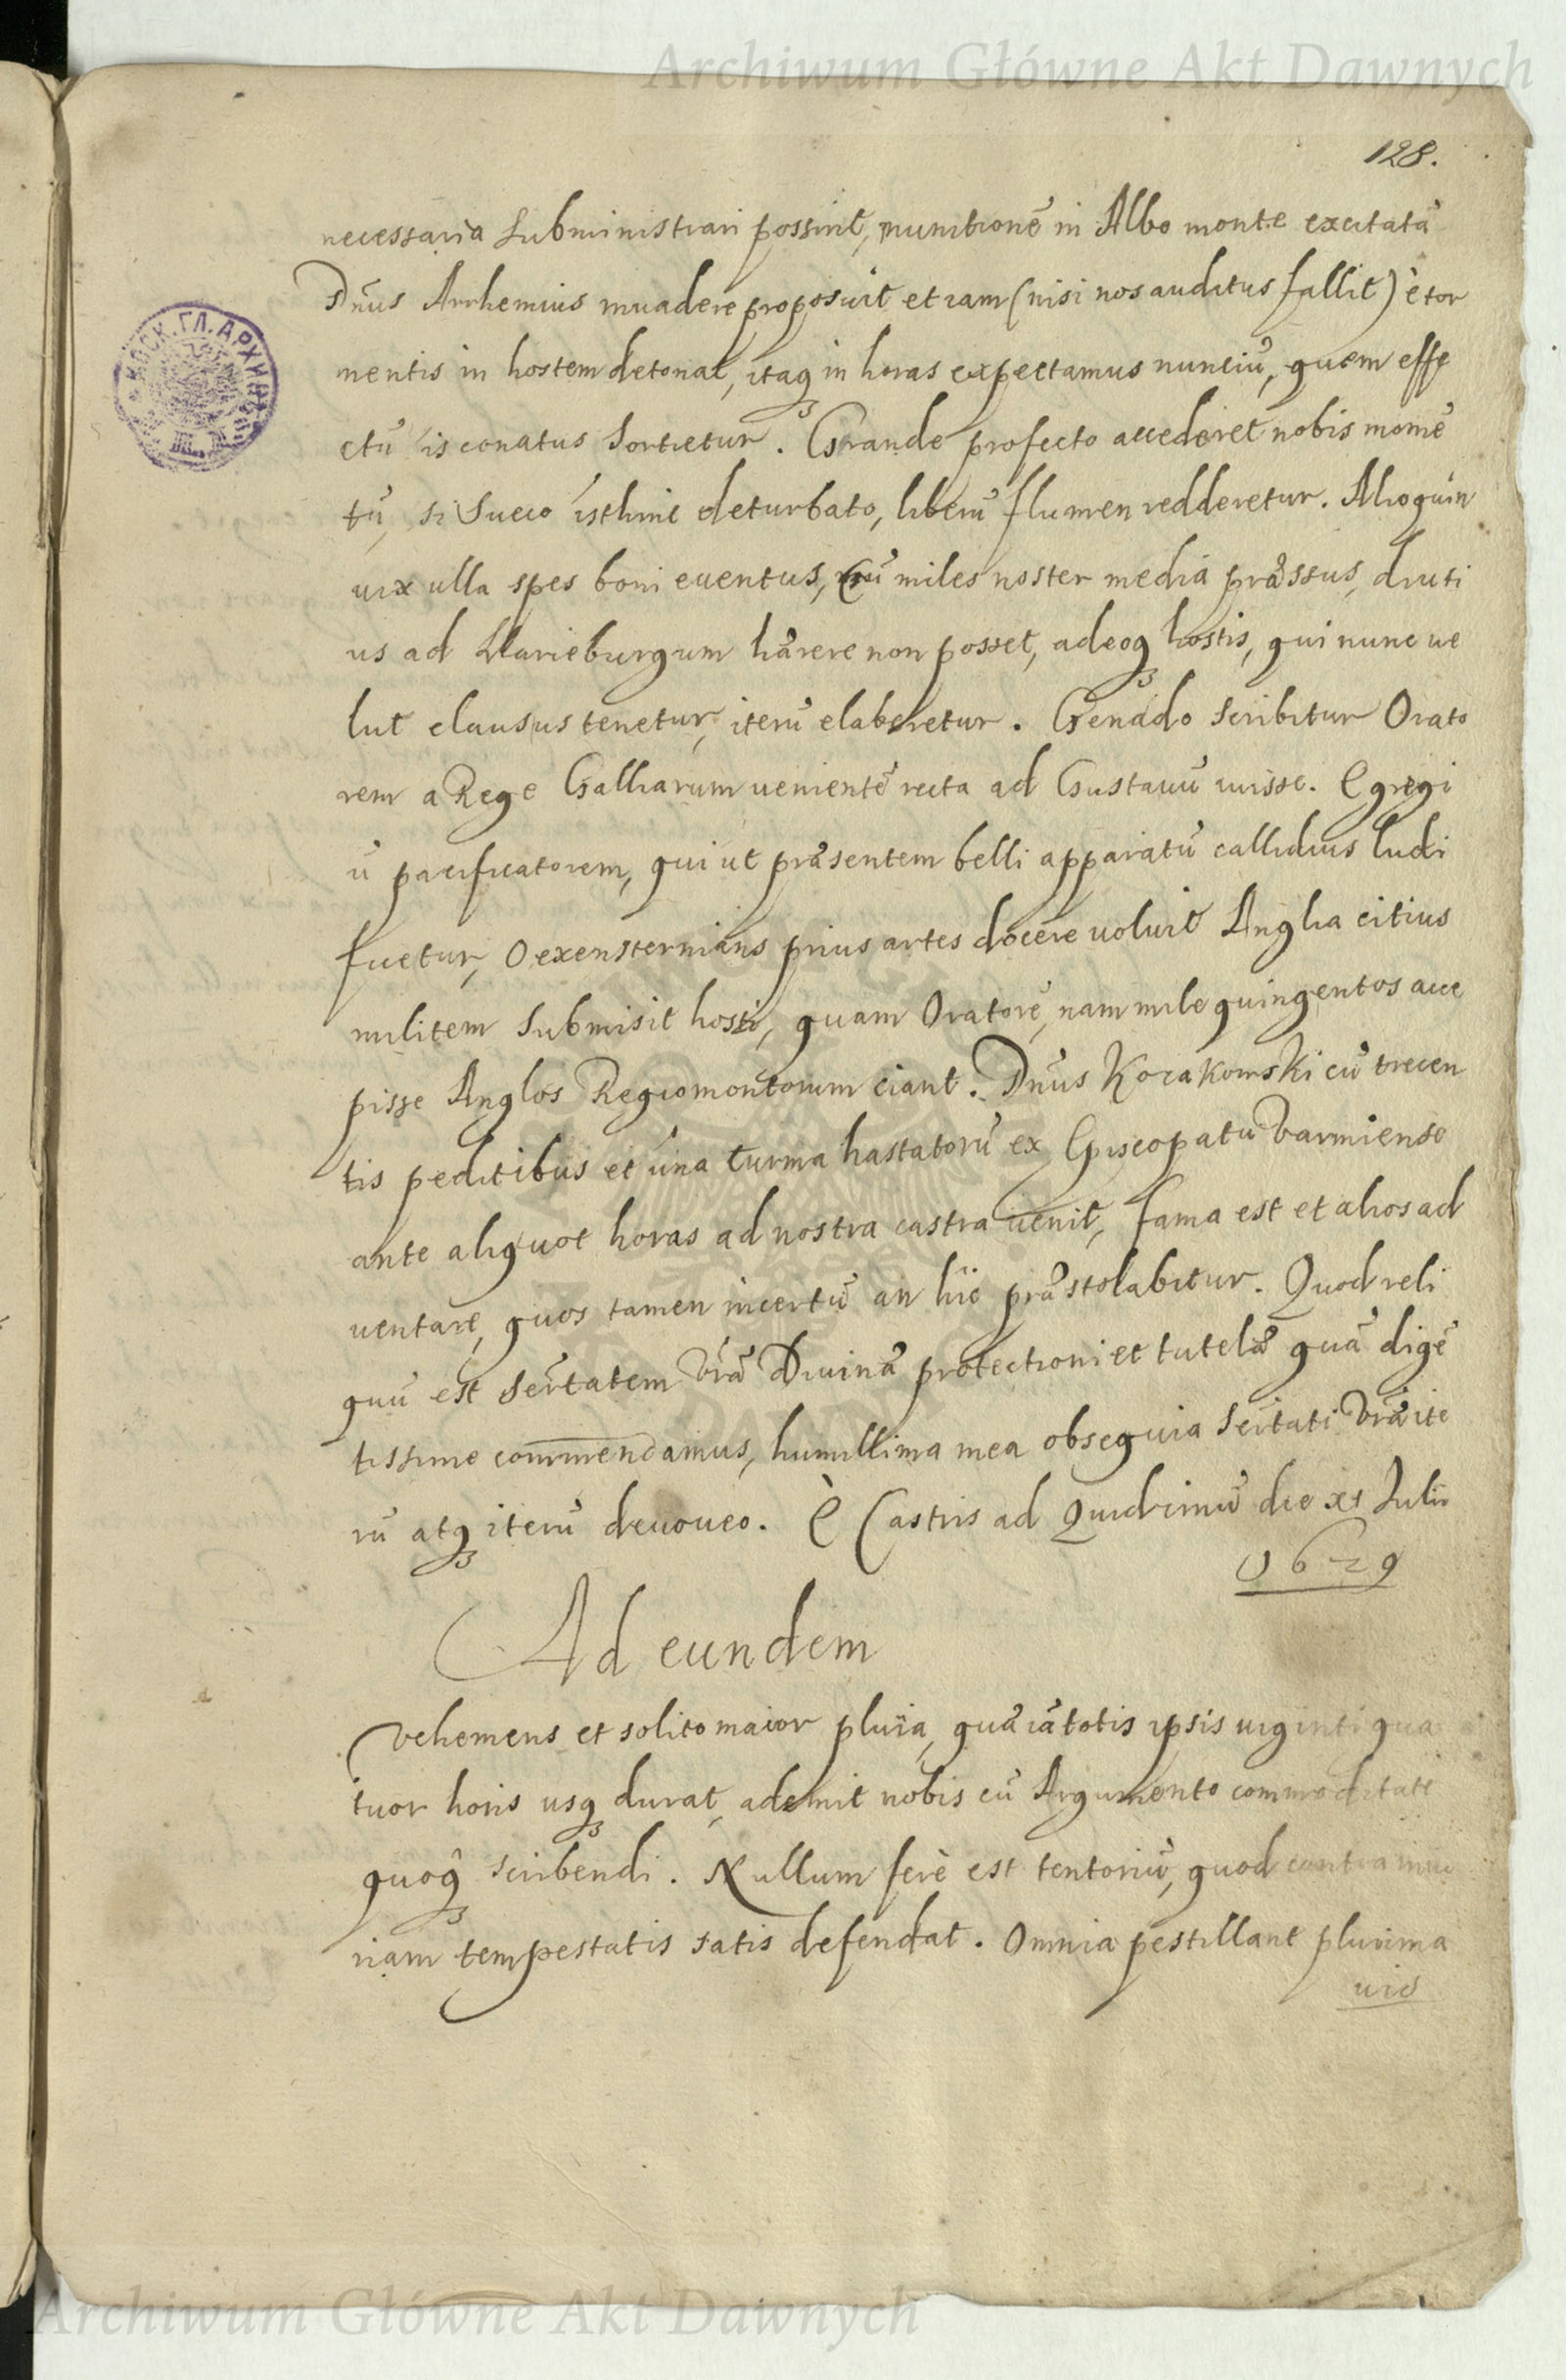 Archiwum Główne Akt Dawnych
128.
necessaria subministrari possint, munitionē in Albo monte excitatā
Dn̄us Arrhemius inuadere proposuit et iam (nisi nos auditus fallit) è tor
mentis in hostem detonat, itaq3 in horas expectamus nunciū, quem effe
ctū is conatus sortietur. Grande profecto accederet nobis momē
tū, si Sueco isthinc deturbato, liberū flumen redderetur. Alioquin
uix ulla spes boni euentus, cū miles noster media præssus, diuti
us ad Marieburgum hærere non posset, adeoq3 hostis, qui nunc ue
lut clausus tenetur, iterū elaberetur. Genādo scribitur Orato
rem a Rege Galliarum uenientē recta ad Gustauū iuisse. Egregi
ū pacificatorem, qui ut præsentem belli apparatū callidius ludi
ficetur, Oexensternians prius artes docere uoluit Anglia citius
militem submisit hosti, quam Oratorē, nam mile quingentos acce
pisse Anglos Regiomontorum ciant. Dn̄us Kozakowski cū trecen
tis peditibus et una turma hastatorū ex Episcopatu Varmiense
ante aliquot horas ad nostra castra uenit, fama est et alios ad
uentare, quos tamen incertū an hic præstolabitur. Quod reli
quū est Sertatem Vrā Diuinæ protectioni et tutelæ quā dilgē
tissime commendamus, humillima mea obsequia Sertati Vræ ite
rū atq3 iterū deuoueo. È Castris ad Quidrinū die xi Julii
1629
Ad eundem
Vehemens et solito maior pluuia, quæ iā totis ipsis uiginti qua
tuor horis usq3 durat, ademit nobis cū Argumento commoditatē
quoq3 scribendi. Nullum ferè est tentoriū, quod contra iniu
riam tempestatis satis defendat. Omnia pestillant plurima
uis
Archiwum Główne Akt Dawnych